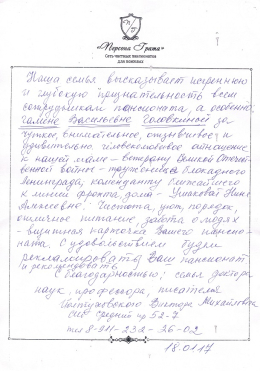 «Персона Грата»
Сеть частных пансионатов
для пожилых
Наша семья высказывает искреннюю
и глубокую признательность всем
сотрудникам пансионата, а особенно,
Галине Васильевне Головкиной за
чуткое, внимательное, отзывчивое и
удивительно человеколюбивое отношение
к нашей маме - ветерану Великой Отечест-
венной войны - труженице блокадного
Ленинграда, коменданту
линии фронта дома - Нине
Алексеевне. Чистота, уют, порядок,
отличное питание, забота о людях
- визитная карточка Вашего пансио-
ната. С удовольствием будем
рекламировать Ваш пансионат
и рекомендовать
С благодарностью, семья доктора
наук, профессора, писателя
Виктора Михайловича
Средний пр 52-7
тел 8-911-232-26-02
18.01.17